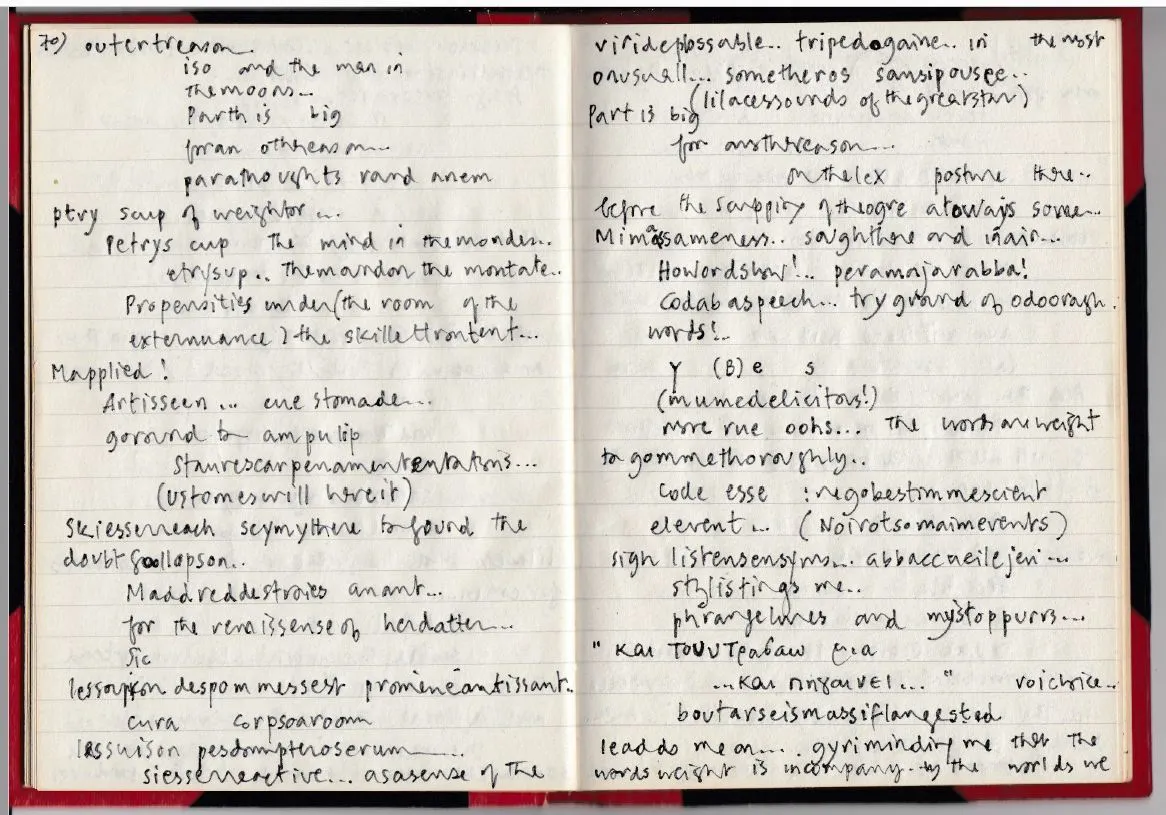 70) outertreason...
iso and the man in
themoons...
Parth is big
foran othereason...
parathoughts rand anem
ptry saup of weighter...
Petrys cup The mind in themondes...
etrysup.. Themandon the montate..
Propensities under (the room of the
externuance) the skillettrontent...
Mapplied!
Artisseen ... eve stomade...
goround to am pulip
(ustomeswill hereit)
skiesserreach scymythere to found the
doubt
Maddreddestroies anant...
for the renaissense of herdatter...
sic
despommessest
cura corpsoaroom
siesserreactive... asasense of the
virideplossable.. tripedogaine.. in the most
onusuall... sometheros sansipousee..
(lilacessounds of thegreatstar)
Part is big
for anothereason...
on thelex posture there..
before the scuppity of theogre atoways some...
sameness.. soughthere and inair...
Howordshow!.. peramajarabba!
Codabaspeech... try ground of odooragh.
words!..
y (B) e s
(mumedelicitous!)
more rue oohs... The words are weight
to gommethoroughly..
Code esse :negobestimmescient
elevent... (Noirotsomaimevents)
sigh listensensyms... abbaccueilejen...
stylistings me..
phrangelunes and mystoppurrs...
" και τουυτραβαω μια
...και πηγαινει... " voichrice..
boutarseismassiflangested
leadds me on.... gyriminding me that the
words weight is incompany.. by the worlds we